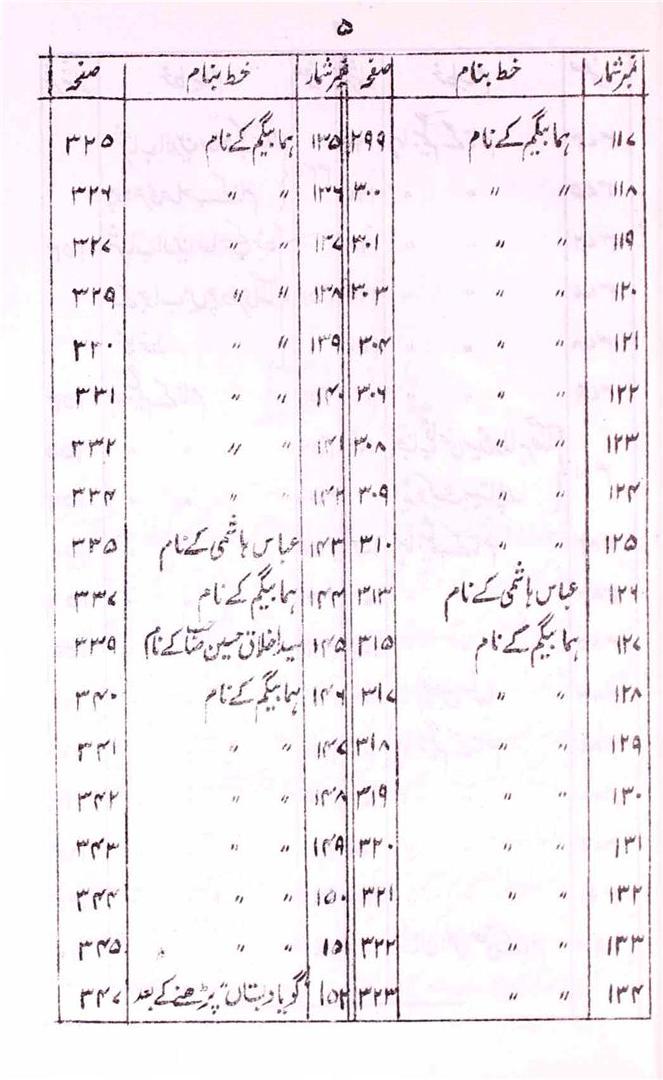 ۵
نمبر شمار خط بنام صفحہ نمبر شمار خط بنام صفحہ
۱۱۷ ہما بیگم کے نام ۲۹۹ ۱۳۵ ہما بیگم کے نام ۳۲۵
۱۱۸〃 〃 ۳۰۰ ۱۳۶ 〃 〃 ۳۲۶
۱۱۹ 〃 〃 ۳۰۱ ۱۳۷ 〃 〃 ۳۲۷
۱۲۰ 〃 〃 ۳۰۳ ۱۳۸ 〃 〃 ۳۲۹
۱۲۱ 〃 〃 ۳۰۴ ۱۳۹ 〃 〃 ۳۳۰
۱۲۲ 〃 〃 ۳۰۶ ۱۴۰ 〃 〃 ۳۳۱
۱۲۳ 〃 〃 ۳۰۸ ۱۴۱ 〃 〃 ۳۳۲
۱۲۴ 〃 〃 ۳۰۹ ۱۴۲ 〃 〃 ۳۳۴
۱۲۵ 〃 〃 ۳۱۰ ۱۴۳ عباس ہاشمی کے نام ۳۳۵
۱۲۶ عباس ہاشمی کے نام ۳۱۳ ۱۴۴ ہما بیگم کے نام ۳۳۷
۱۲۷ ہما بیگم کے نام ۳۱۵ ۱۴۵ سید اخلاق حسین صاحب کے نام ۳۳۹
۱۲۸ 〃 〃 ۳۱۷ ۱۴۶ ہما بیگم کے نام ۳۴۰
۱۲۹ 〃 〃 ۳۱۸ ۱۴۷ 〃 〃 ۳۴۱
۱۳۰ 〃 〃 ۳۱۹ ۱۴۸ 〃 〃 ۳۴۲
۱۳۱ 〃 〃 ۳۲۰ ۱۴۹ 〃 〃 ۳۴۳
۱۳۲ 〃 〃 ۳۲۱ ۱۵۰ 〃 〃 ۳۴۴
۱۳۳ 〃 〃 ۳۲۲ ۱۵۱ 〃 〃 ۳۴۵
۱۳۴ 〃 〃 ۳۲۳ ۱۵۲ "گویا دبستاں" پڑھنے کے بعد ۳۴۷